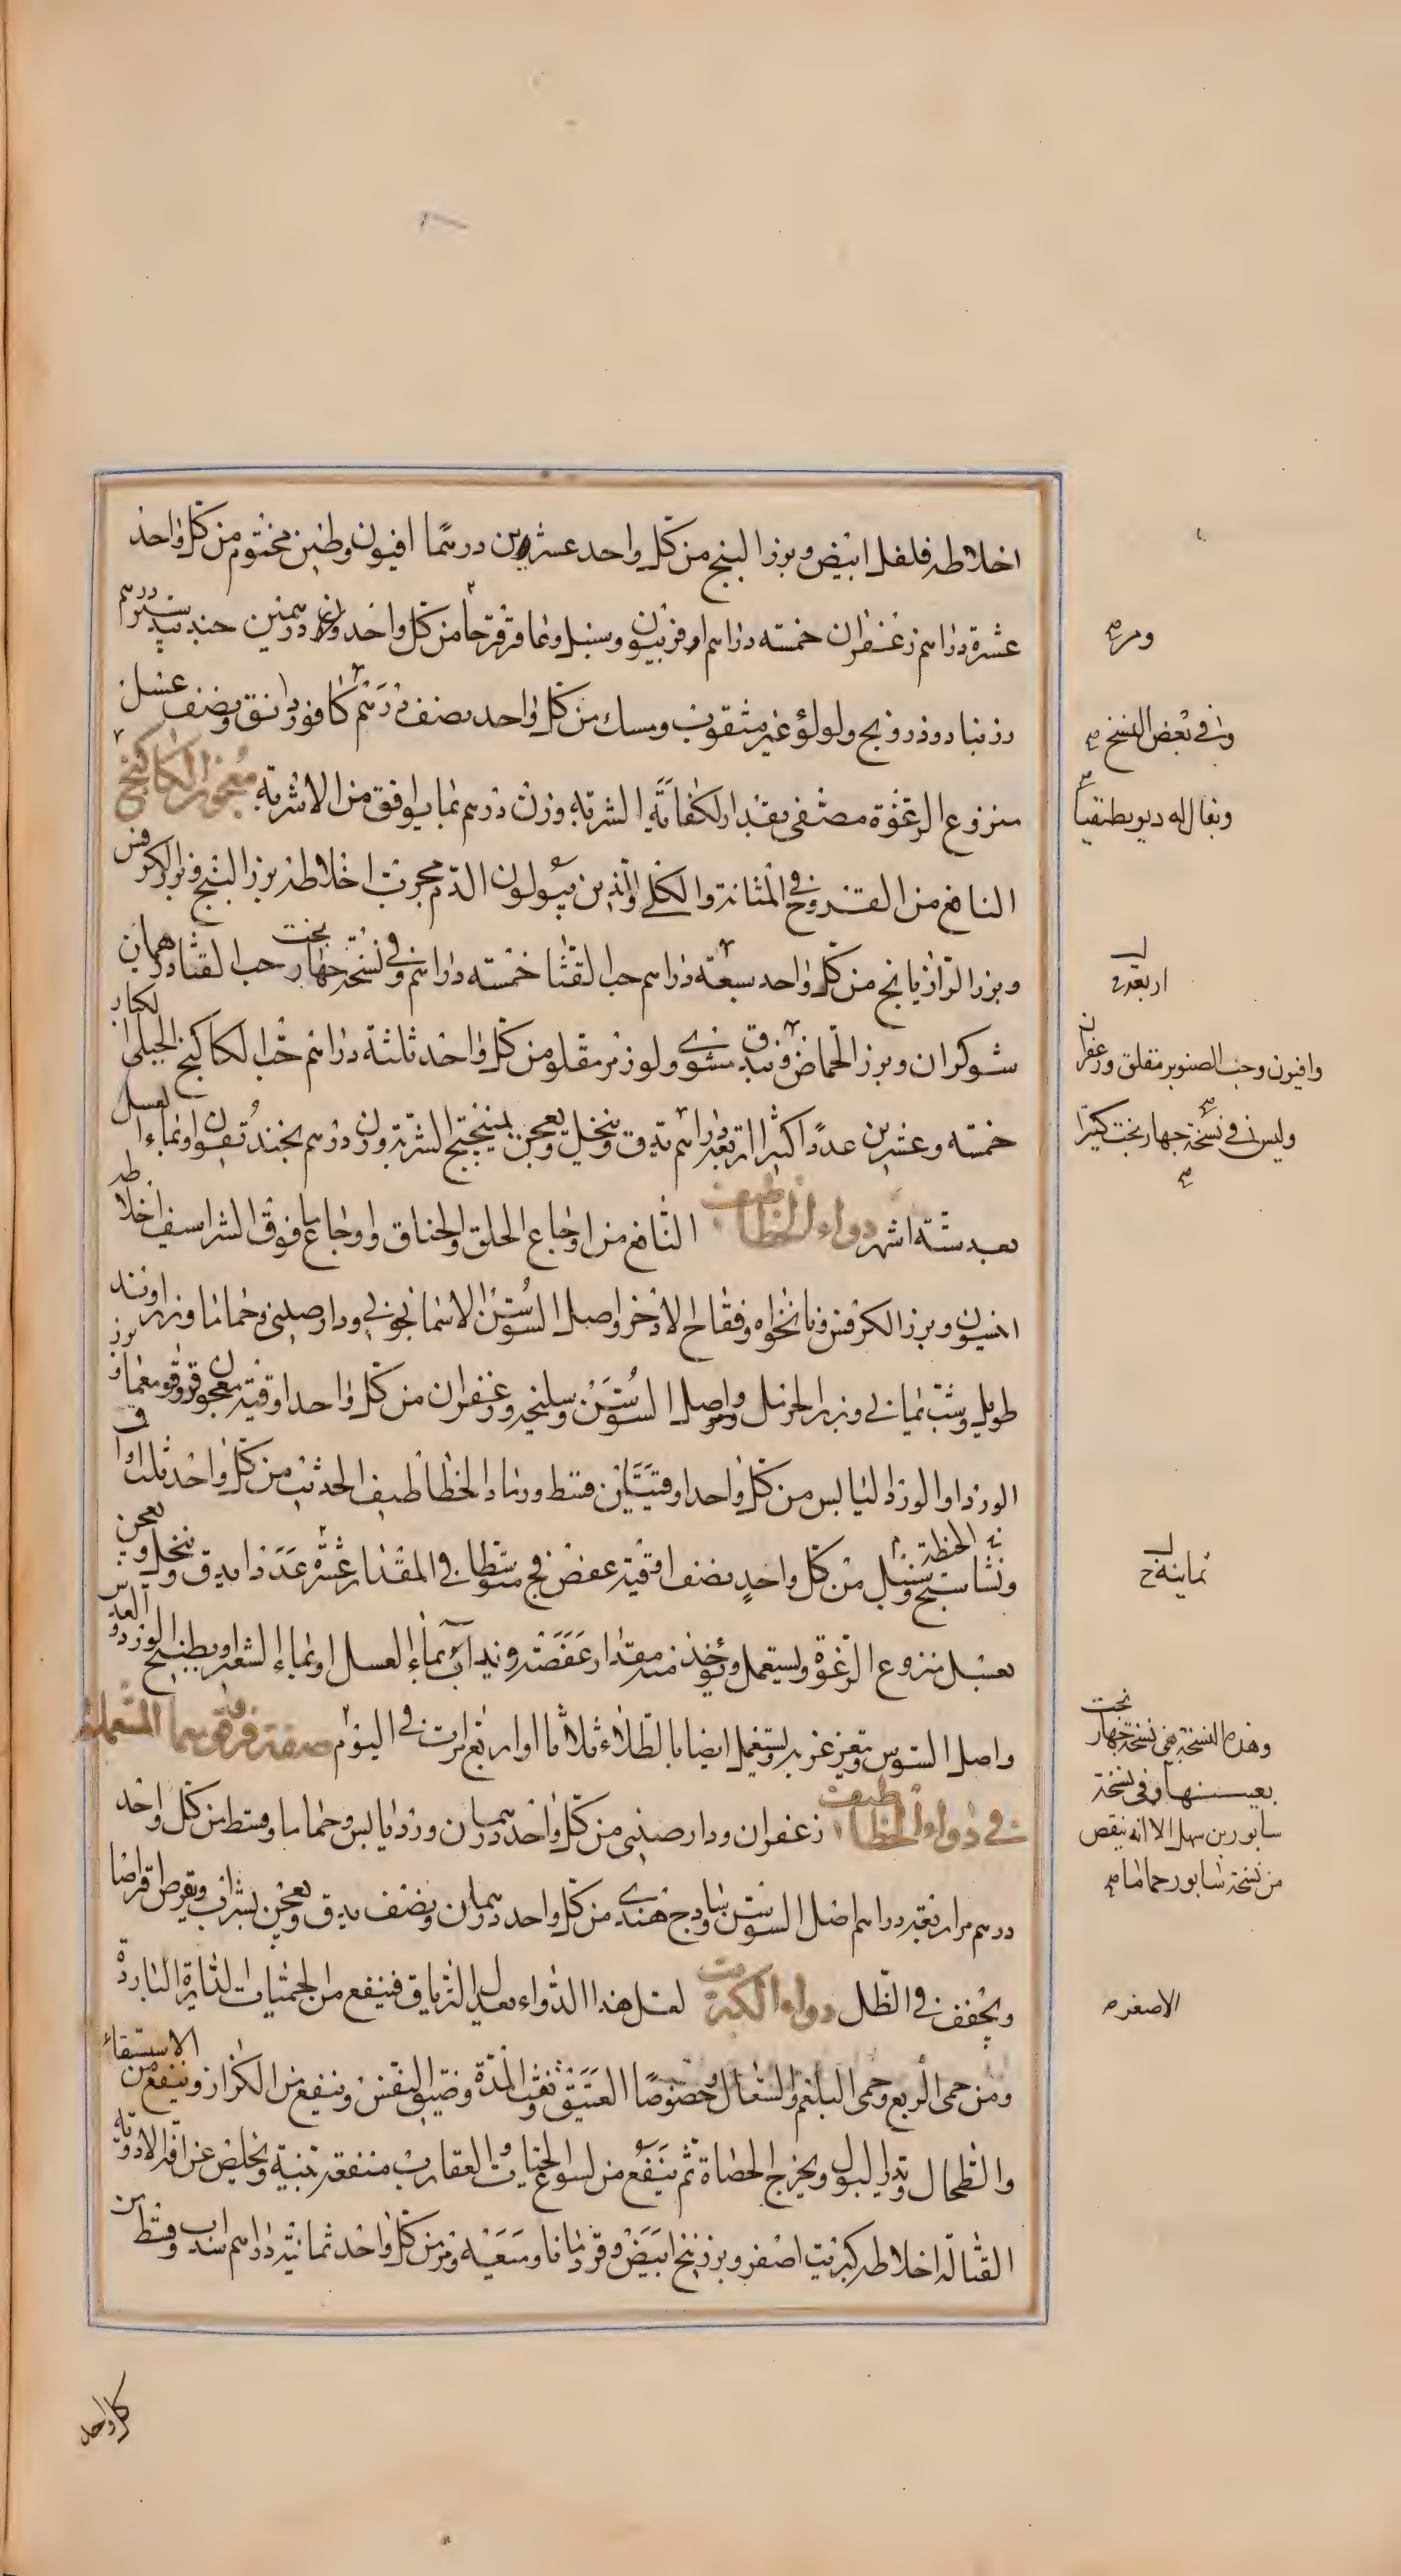 اخلاطه فلفل ابيض وبزر البنج من كل واحد عشرين درهما افيون وطين مختوم من كل واحد
عشرة دراهم زعفران خمسه دراهم افربيون وسنبل وعاقرقرحا من كل واحد وزن درهمين جندبيدستر درهم
زرنباد ودرونج ولولؤ غير مثقوب ومسك من كل واحد نصف درهم كافور دانق ونصف عسل
منزوع الرغوة مصفى بقدر الكفاية الشربة وزن درهم بما يوافق من الاشربة معجون الكاكنج
النافع من القروح في المثانة والكلى والذين يبولون الدم مجرب اخلاطه بزر البنج وبزر الكرفس
وبزر الرازيانج من كل واحد سبعة دراهم حب القثا خمسه دراهم وفي نسخة جهاربخت حب القثا درهمان
شوكران وبزر الحماض وبندق مشوي ولوز مر مقلو من كل واحد ثلثة دراهم حب الكاكنج الجبلى الكبار
خمسه وعشرين عددا كثيرا اربعة دراهم يدق وينخل ويعجن بميبختج الشربة وزن درهم بخنديقون او بماء العسل
بعد ستة اشهر دواء الخطاطيف النافع من اوجاع الحلق والخناق واوجاع ما فوق الشراسيف اخلاطه
انيسون وبزر الكرفس ونانخواه وفقاح الاذخر واصل السوسن الاسمانجوني ودارصيني وحماما وزراوند
طويل وشب يماني وبزر الحرمل واصل السوسن وسليخه وزعفران من كل واحد اوقية معجون قرقومغما وبزر
الورد او الورد اليابس من كل واحد اوقيتين قسط ورماد الخطاطيف الحديث من كل واحد ثلث اواق
ونشاستج الحنطة وسنبل من كل واحد نصف اوقية عفص فج متوسطا في المقدار عشرة عددا يدق وينخل ويعجن
بعسل منزوع الرغوة ويستعمل ويؤخذ منه مقدار عفصة ويداف بماء العسل او بماء الشعير او بطبيخ الورد والعدس
واصل السوس ويغرغر به ويستعمل ايضا بالطلاء ثلاثا او اربع مرات في اليوم صفة قرقومعما المستعملة
في دواء الخطاطيف زعفران ودارصيني من كل واحد درهمان ورد يابس وحماما وقسط من كل واحد
درهم مر اربعة دراهم اصل السوسن ساذج هندي من كل واحد درهمان ونصف يدق ويعجن بشراب ويقرص اقراصا
ويجفف في الظل دواء الكبريت لعل هذا الدواء يعدل الترياق فينفع من الحميات الدايرة الباردة
ومن حمى الربع وحمى البلغم والسعال وخصوصا العتيق ونفث المدة وضيق النفس وينفع من الكزاز وينفع من الاستسقاء
والطحال ويدر البول ويخرج الحصاة ثم ينفع من لسوع الحيات والعقارب منفعة بينة ويخلص عن افة الادوية
القتالة اخلاطه كبريت اصفر وبزر بنج ابيض وقردمانا وميعه ومر من كل واحد ثمانية دراهم سذاب وقسط من
كل واحد
ومر
وفي بعض النسخ
ويقال له ديوبطنقيا
اربعة
وافيون وحب الصنوبر مقلو وزعفران
وليس في نسخة جهاربخت كثيرا
ثمانية
وهذه النسخة هي نسخة جهاربخت
بعينها وفي نسخة
سابور بن سهل الا انه ينقص
من نسخة سابور حماما
الاصفر